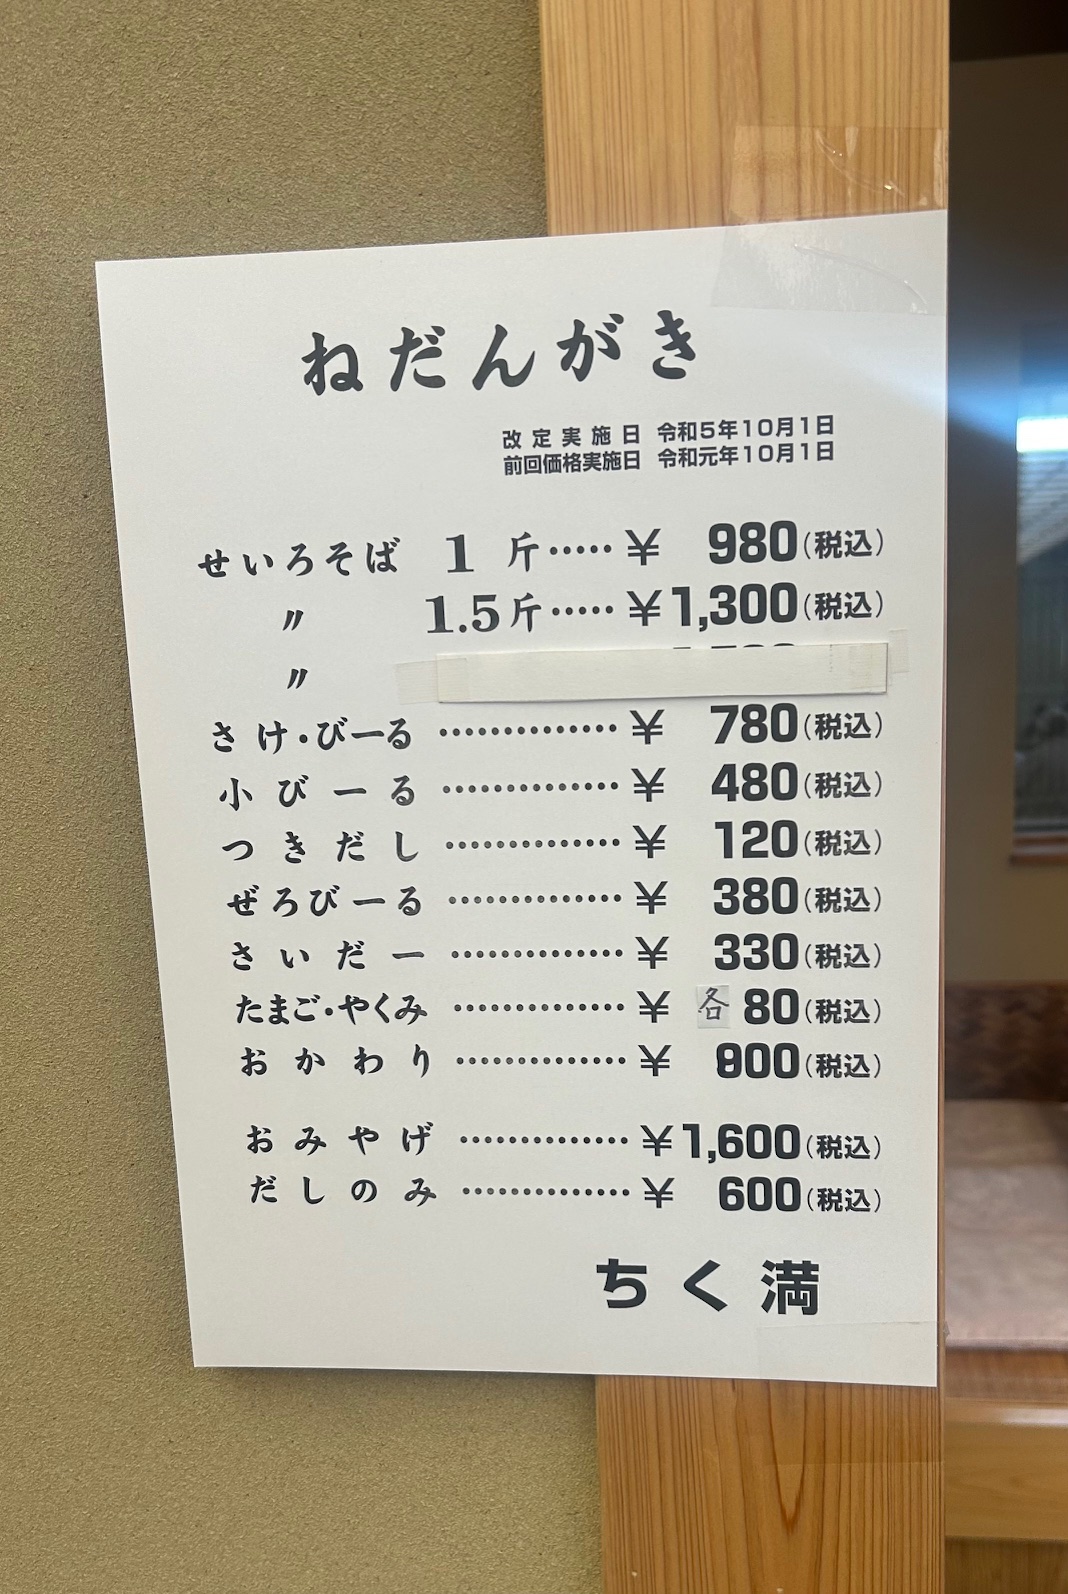 ねだんがき
改定実施日 令和5年10月1日
前回価格実施日 令和元年10月1日
せいろそば 1 斤・・・・・ ¥ 980(税込)
〃 1.5斤・・・・・ ¥1,300(税込)
〃
さけ・びーる ・・・・・・・・・・・・・・ ¥ 780(税込)
小びーる ・・・・・・・・・・・・・・ ¥ 480(税込)
つきだし ・・・・・・・・・・・・・・ ¥ 120(税込)
ぜろびーる ・・・・・・・・・・・・・・ ¥ 380(税込)
さいだー ・・・・・・・・・・・・・・ ¥ 330(税込)
たまご・やくみ ・・・・・・・・・・・・・・ ¥ 各 80(税込)
おかわり ・・・・・・・・・・・・・・ ¥ 900(税込)
おみやげ ・・・・・・・・・・・・・・ ¥1,600(税込)
だしのみ ・・・・・・・・・・・・・・ ¥ 600(税込)
ちく満